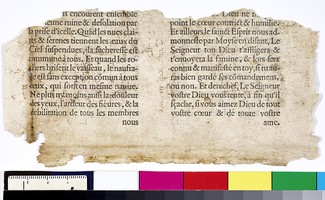 rs encourent ensemble
ruine & desolation par
la prise d'icelle. Quãd les nues clai-
& serenes tiennent les eaux du
Ciel suspendues, la secheresse est
commune à tous. Et quand les ro-
le vaisseau, le naufra-
sans exception cõmun à tous
ceux, qui sont en mesme navire.
Ne plus ne moins aussi la douleur
des yeux, l'ardeur des fieures, & la
debilitation de tous les membres
nous
Dieu ne
point le cœur contrit & humilié
Et ailleurs le sainct Esprit nous ad-
monneste par Moyse en disant, Le
Seigneur ton Dieu t'affligera &
t'envoyera la famine, & lors sera
connu & manifesté en toy, si tu au-
ras bien gardé ses cõmandemens,
ou non. Et derechef, Le Seigneur
vostre Dieu vous tente, à fin qu'il
sçache, si vous aimez Dieu de tout
vostre cœur & de toute vostre
ame.